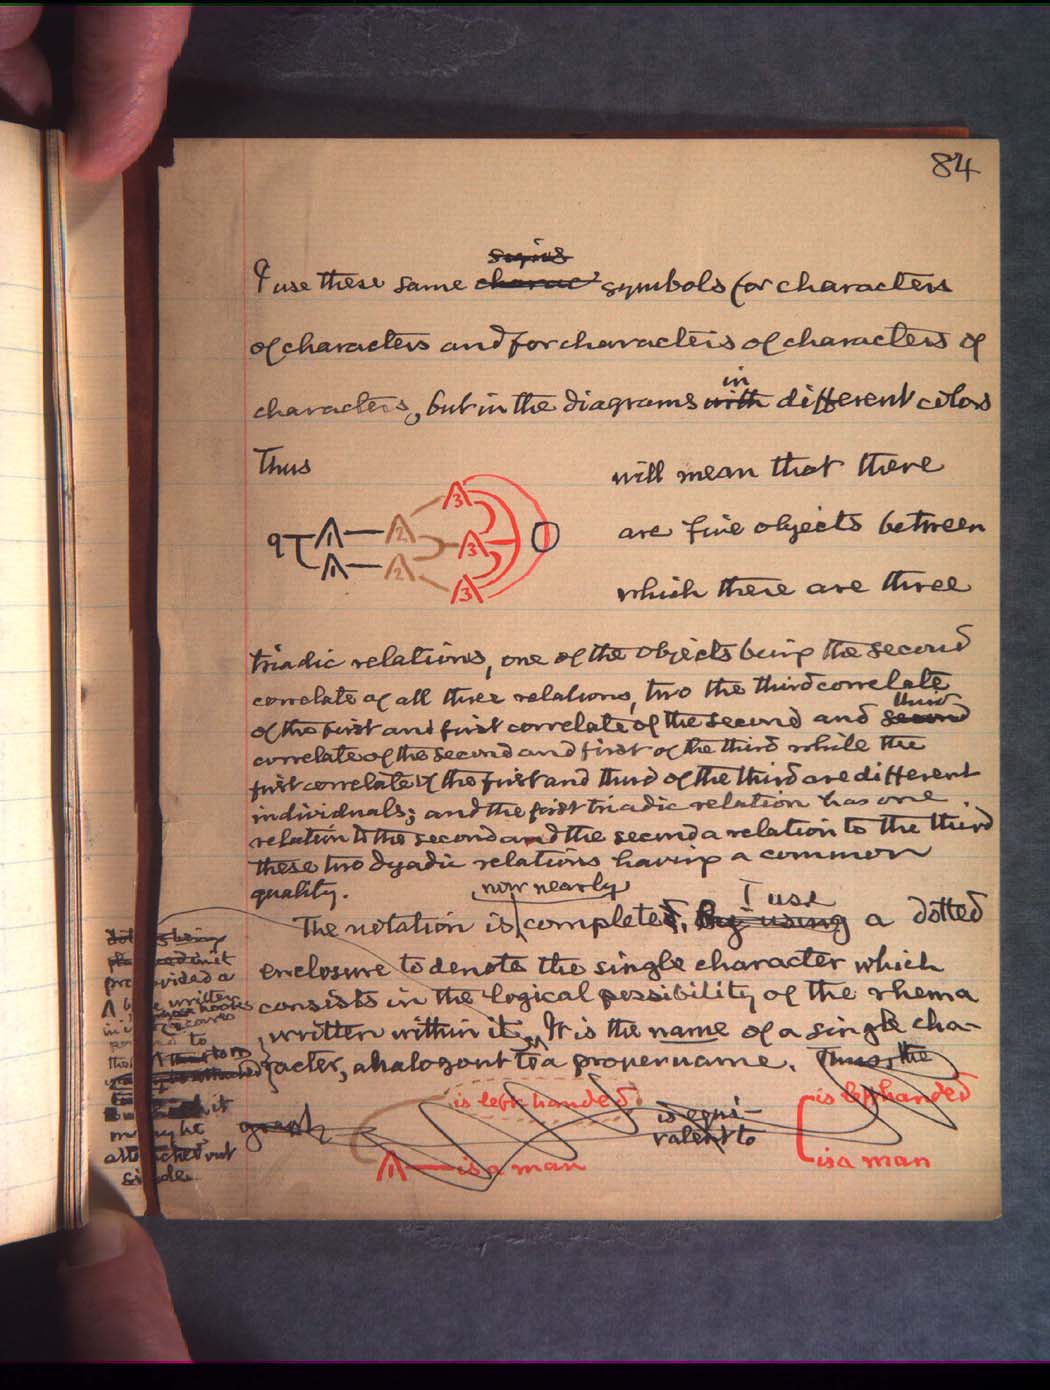 84
signs
I use these same charac symbols for characters
of characters and for characters of characters of
in
characters, but in the diagrams with different colors
Thus
will mean that there
are five objects between
which there are three
q 1 2 3
1 2 3
3
triadic relations, one of the objects being the second
correlate of all three relations, two the third correlate
third
of the first and first correlate of the second and second
correlate of the second and first of the third while the
first correlate of the first and third of the third are different
individuals; and the first triadic relation has one
relation to the second and the second a relation to the third
these two dyadic relations having a common
quality.
now nearly
I use
The notation is completed. By using a dotted
enclosure to denote the single character which
consists in the logical possibility of the rhema
written within it. It is the name of a single cha-
racter, analogous to a proper name. Thus, the
graph
is left handed
is a man
is equi-
valent to
is left handed
is a man
provided a
written
to
it
may be
attached out
side.